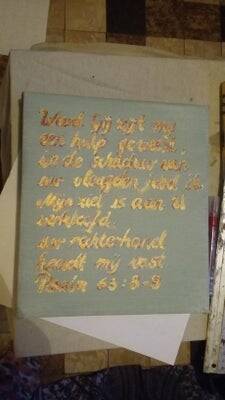 Want gij zijt mij
een hulp geweest,
in de schaduw van
uw vleugelen jubel ik
Mijn ziel is aan U
verkleefd,
uw rechterhand
houdt mij vast.
Psalm 63:8-9